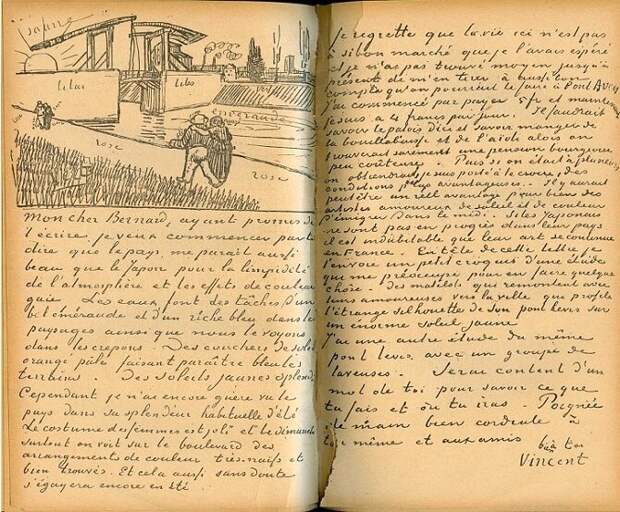 jaune
lilas
lilas
émeraude
rose
rose
Mon cher Bernard, ayant promis de
t'écrire je veux commencer par te
dire que le pays me parait aussi
beau que le Japon pour la limpidité
de l'atmosphère et les effets de couleur
gaie. Les eaux font des tâches d'un
bel émeraude et d'un riche bleu dans les
paysages ainsi que nous le voyons
dans les crepons. Des couchers de soleil
orangé pâle faisant paraître bleu les
terrains. Des soleils jaunes splendides.
Cependant je n'ai encore guère vu le
pays dans sa splendeur habituelle d'été
Le costume des femmes est joli et le dimanche
surtout on voit sur le boulevard des
arrangements de couleur très naïfs et
bien trouvés. Et cela aussi sans doute
s'égayera encore en été.
Je regrette que la vie ici n'est pas
à si bon marché que je l'avais espéré
et je n'ai pas trouvé moyen jusqu'à
présent de m'en tirer à aussi bon
compte qu'on pourrait le faire à Pont Aven
j'ai commencé par payer 5 fr et maintenant
je suis à 4 francs par jour. Il faudrait
savoir le patois d'ici et savoir manger de
la bouillabaisse et de l'aïoli alors on
trouverait surement une pension bourgeoise
peu coûteuse. Puis si on était à plusieurs
on obtiendrait, je suis porté à le croire, des
conditions plus avantageuses. Il y aurait
peutêtre un réel avantage pour bien des
artistes amoureux de soleil et de couleur
d'émigrer dans le midi. Si les Japonais
ne sont pas en progrès dans leur pays
il est indubitable que leur art se continue
en France. En tête de cette lettre je
t'envoie un petit croquis d'une étude
qui me préoccupe pour en faire quelque
chose. Des matelots qui remontent avec
leurs amoureuses vers la ville qui profile
l'étrange silhouette de son pont levis sur
un énorme soleil jaune
J'ai une autre étude du même
pont levis avec un groupe de
laveuses. Serai content d'un
mot de toi pour savoir ce que
tu fais et où tu iras. Poignée
de main bien cordiale à
toi même et aux amis
b. à toi
Vincent